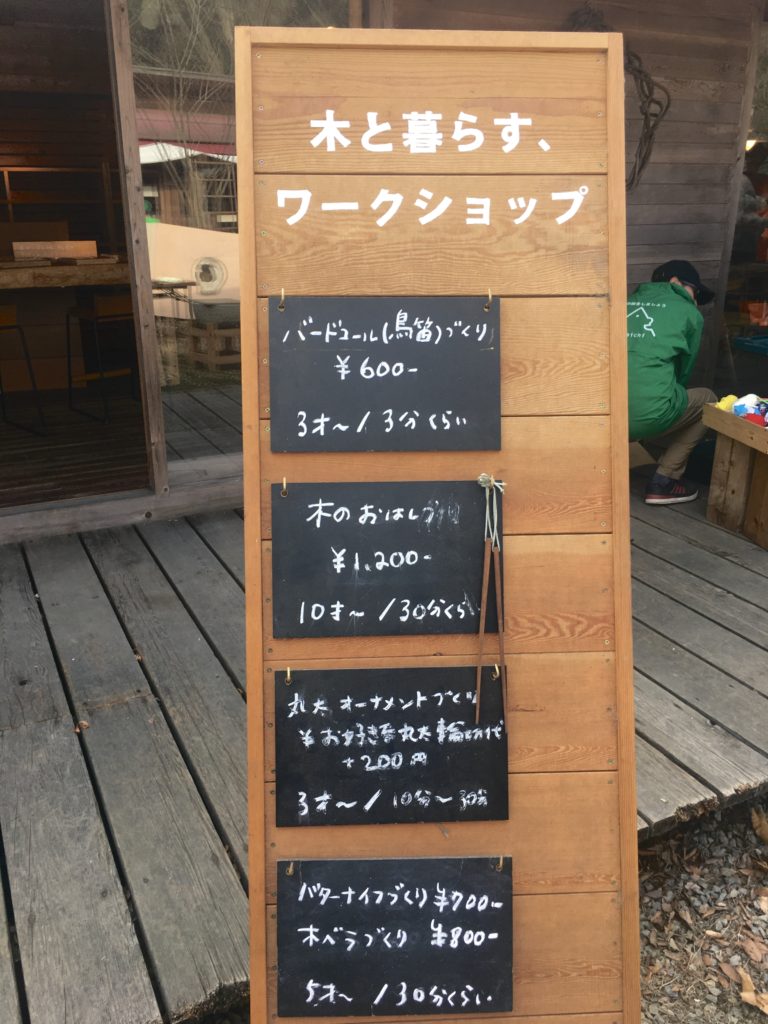 木と暮らす、
ワークショップ
バードコール(鳥笛)づくり
¥600-
3才〜/3分くらい
木のおはしづくり
¥1,200-
10才〜/30分くらい
丸太オーナメントづくり
¥お好きな丸太輪切り代
+200円
3才〜/10分〜30分
バターナイフづくり ¥700-
木ベラづくり ¥800-
5才〜/30分くらい